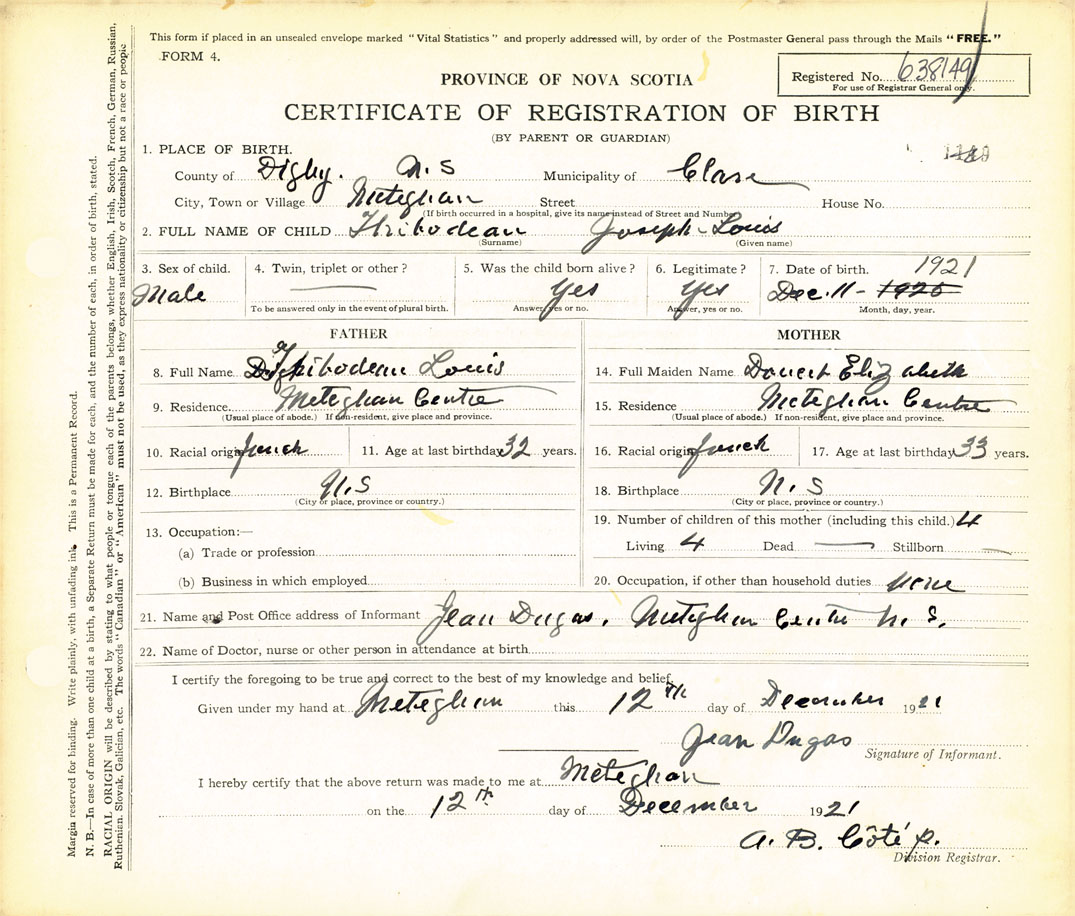 This form if placed in an unsealed envelope marked "Vital Statistics" and properly addressed will, by order of the Postmaster General pass through the Mails "FREE."
FORM 4.
Registered No. 638149
For use of Registrar General only.
PROVINCE OF NOVA SCOTIA
CERTIFICATE OF REGISTRATION OF BIRTH
(BY PARENT OR GUARDIAN)
1. PLACE OF BIRTH.
County of Digby. N.S Municipality of Clare
City, Town or Village Meteghan Street House No.
(If birth occurred in a hospital, give its name instead of Street and Number)
2. FULL NAME OF CHILD Thibodeau Joseph-Louis
(Surname) (Given name)
3. Sex of child. 4. Twin, triplet or other? 5. Was the child born alive? 6. Legitimate? 7. Date of birth. 1921
Male Yes Yes Dec. 11 - 1920
To be answered only in the event of plural birth. Answer, yes or no. Answer, yes or no. Month, day, year.
FATHER
8. Full Name Thibodeau Louis
9. Residence. Meteghan Centre
(Usual place of abode.) If non-resident, give place and province.
10. Racial origin french 11. Age at last birthday 32 years.
12. Birthplace N.S
(City or place, province or country.)
13. Occupation:—
(a) Trade or profession
(b) Business in which employed
MOTHER
14. Full Maiden Name Doucet Elizabeth
15. Residence Meteghan Centre
(Usual place of abode.) If non-resident, give place and province.
16. Racial origin french 17. Age at last birthday 33 years.
18. Birthplace N.S
(City or place, province or country.)
19. Number of children of this mother (including this child.) 4
Living 4 Dead — Stillborn —
20. Occupation, if other than household duties none
21. Name and Post Office address of Informant Jean Dugas, Meteghan Centre N.S.
22. Name of Doctor, nurse or other person in attendance at birth
I certify the foregoing to be true and correct to the best of my knowledge and belief.
Given under my hand at Meteghan this 12th day of December 1921
Jean Dugas
Signature of Informant.
I hereby certify that the above return was made to me at Meteghan
on the 12th day of December 1921
A. B. Côté p.
Division Registrar.
Margin reserved for binding. Write plainly, with unfading ink. This is a Permanent Record.
N. B.—In case of more than one child at a birth, a Separate Return must be made for each, and the number of each, in order of birth, stated.
RACIAL ORIGIN will be described by stating to what people or tongue each of the parents belongs, whether English, Irish, Scotch, French, German, Russian,
Ruthenian, Slovak, Galician, etc. The words "Canadian" or "American" must not be used, as they express nationality or citizenship but not a race or people